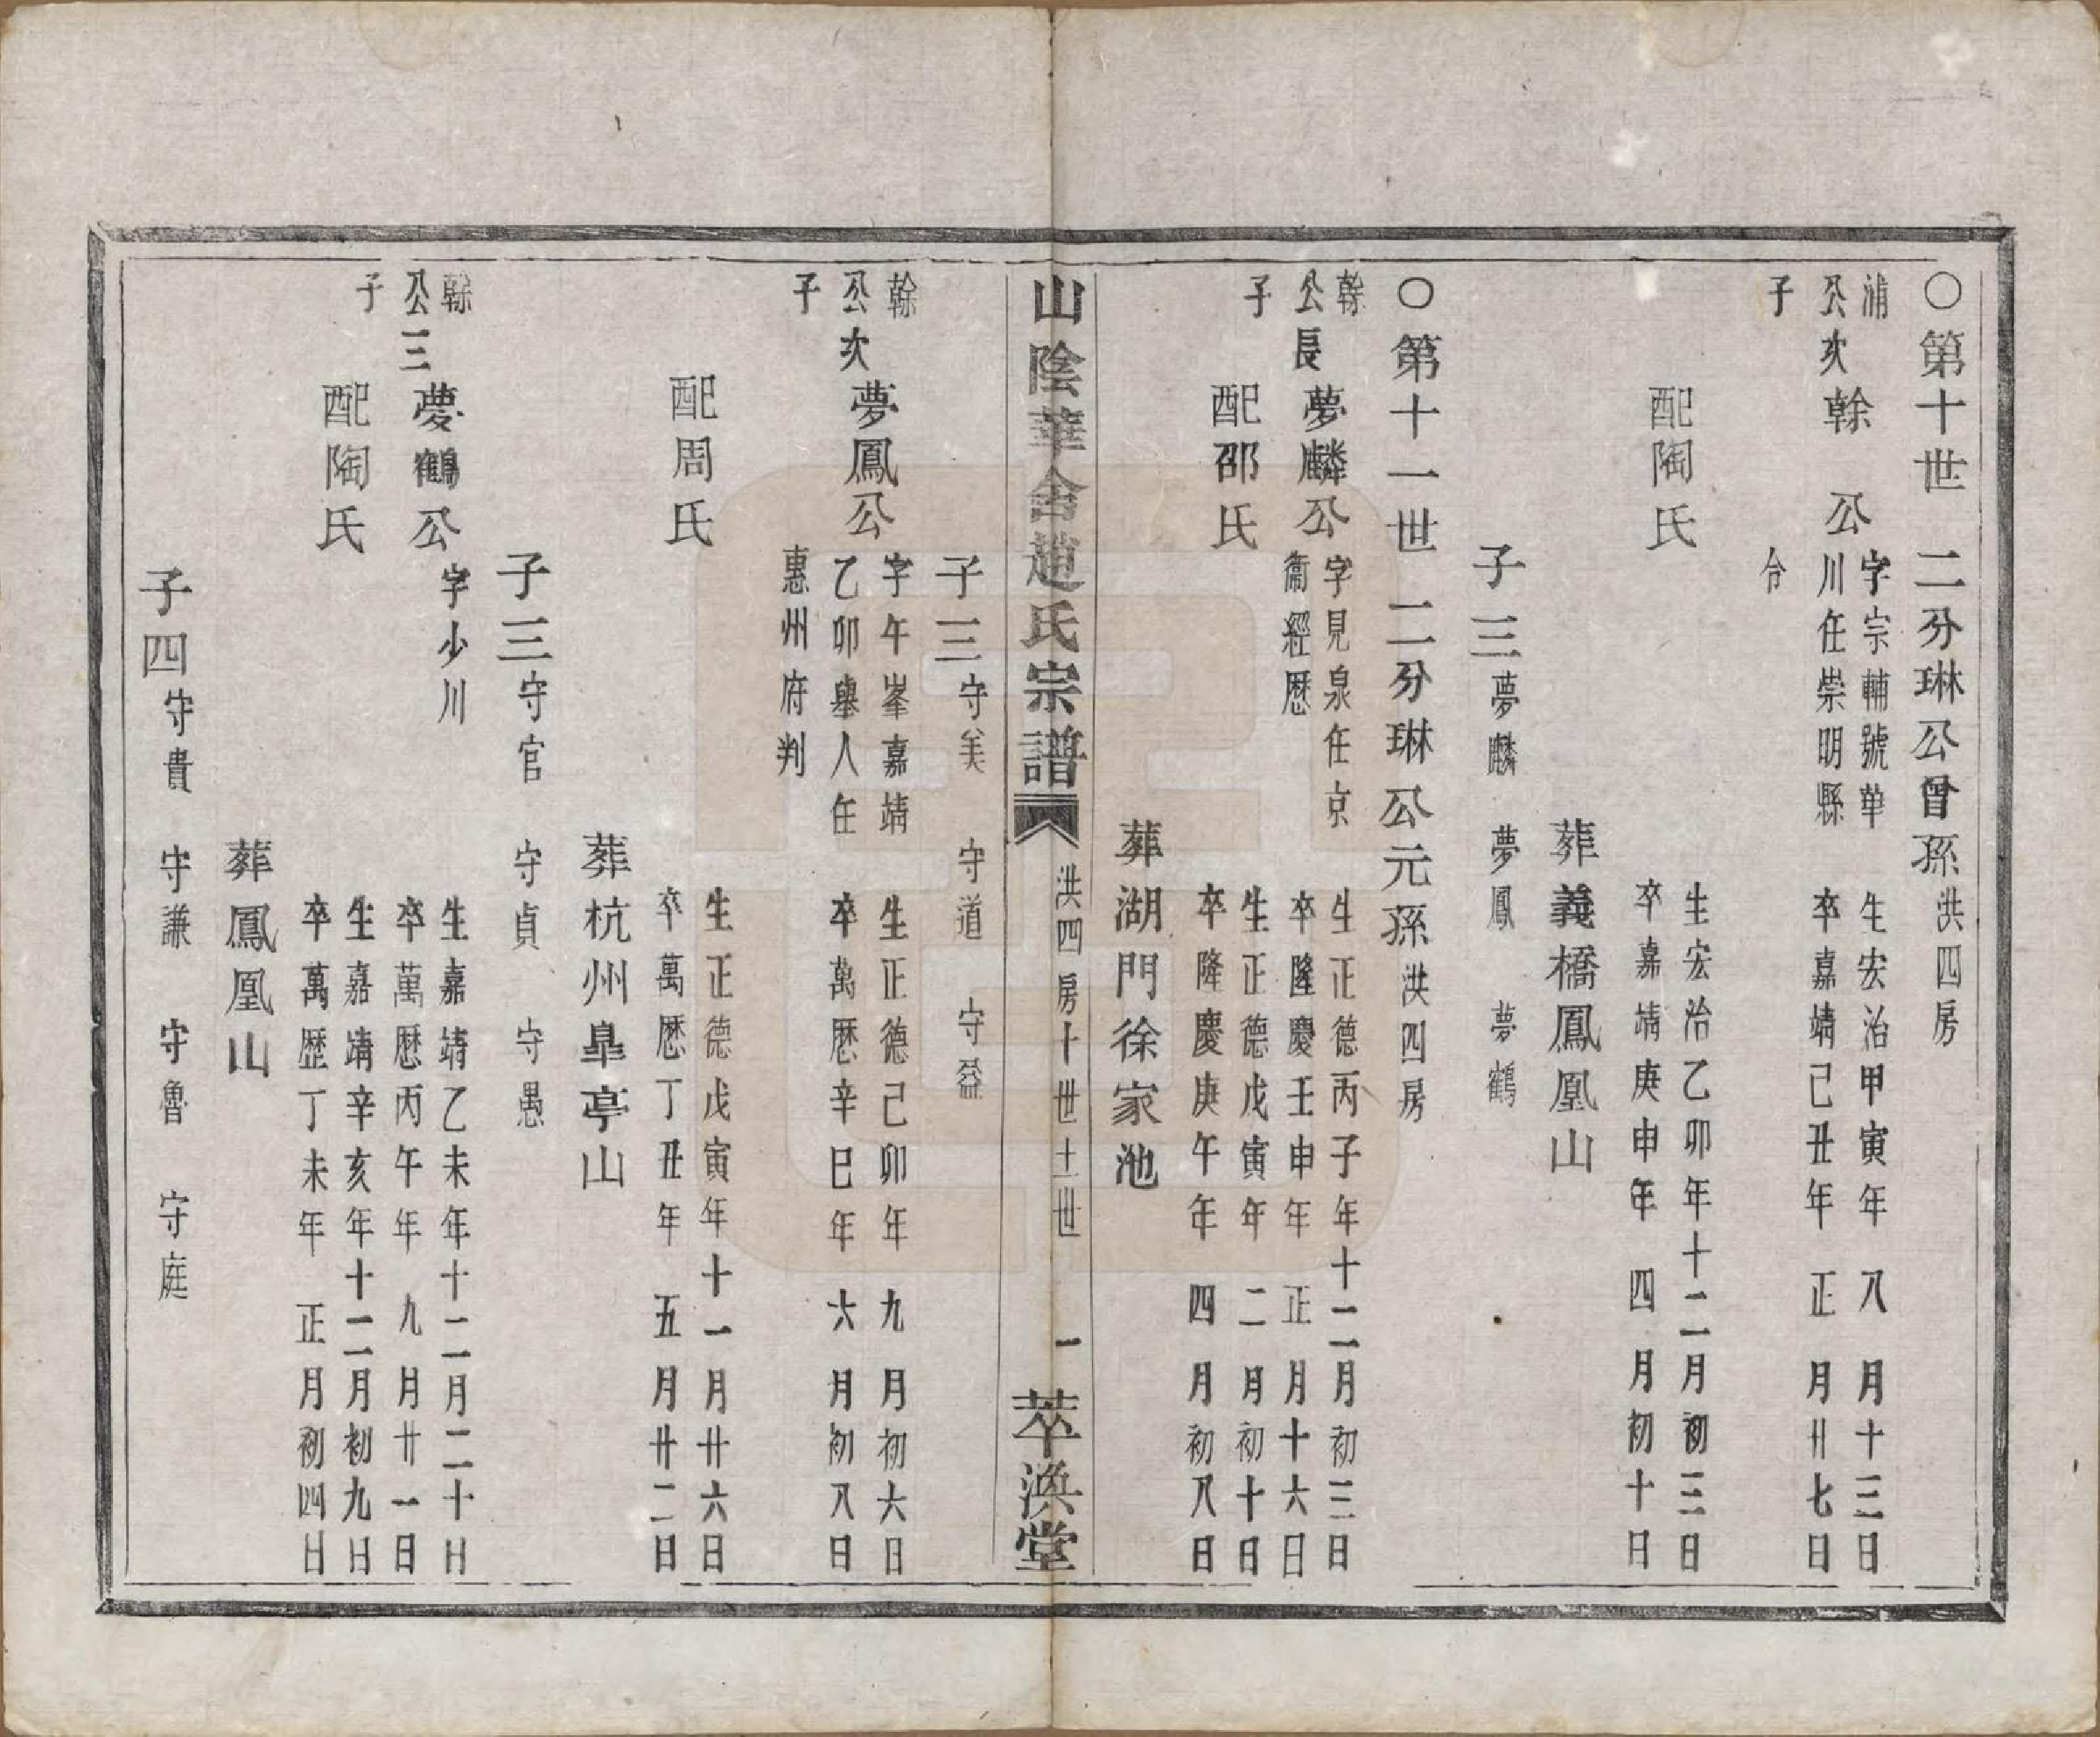 ○第十世 二分琳公曾孫洪四房
浦公次子
榦 公
字宗輔號華
川任崇明縣
令
生宏治甲寅年八月十三日
卒嘉靖己丑年正月廿七日
配陶氏
生宏治乙卯年十二月初三日
卒嘉靖庚申年四月初十日
葬義橋鳳凰山
子三 夢麟 夢鳳 夢鶴
○第十一世 二分琳公元孫洪四房
榦公長子
夢麟公
字見泉任京
衞經歷
生正德丙子年十二月初三日
卒隆慶壬申年正月十六日
配邵氏
生正德戊寅年二月初十日
卒隆慶庚午年四月初八日
葬湖門徐家池
山陰華舍趙氏宗譜 洪四房十世 十一世 一 萃渙堂
子三 守美 守道 守益
榦公次子
夢鳳公
字午峯嘉靖
乙卯舉人任
惠州府判
生正德己卯年九月初六日
卒萬曆辛巳年六月初八日
配周氏
生正德戊寅年十一月廿六日
卒萬曆丁丑年五月廿二日
葬杭州臯亭山
子三 守官 守貞 守愚
榦公三子
夢鶴公
字少川
生嘉靖乙未年十二月二十日
卒萬曆丙午年九月廿一日
配陶氏
生嘉靖辛亥年十二月初九日
卒萬歷丁未年正月初四日
葬鳳凰山
子四 守貴 守謙 守魯 守庭